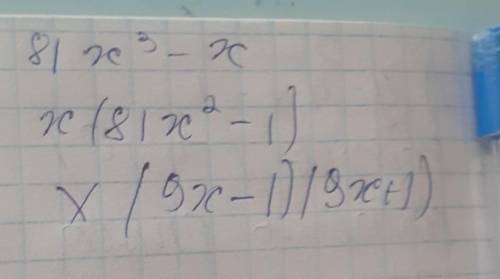 81x³ - x
x(81x² - 1)
x(9x-1)(9x+1)